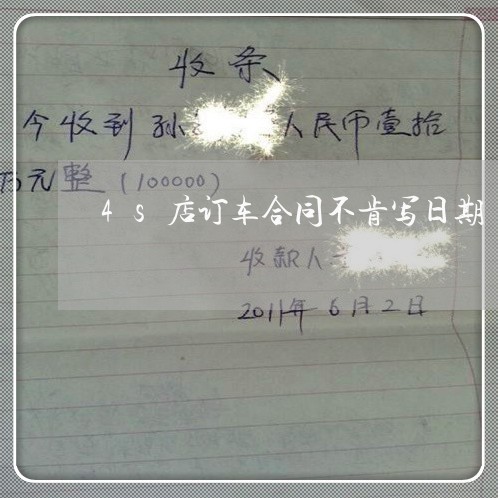 收条
今收到孙 人民币壹拾
万元整(100000)
4s店订车合同不肯写日期
收款人
2011年6月2日